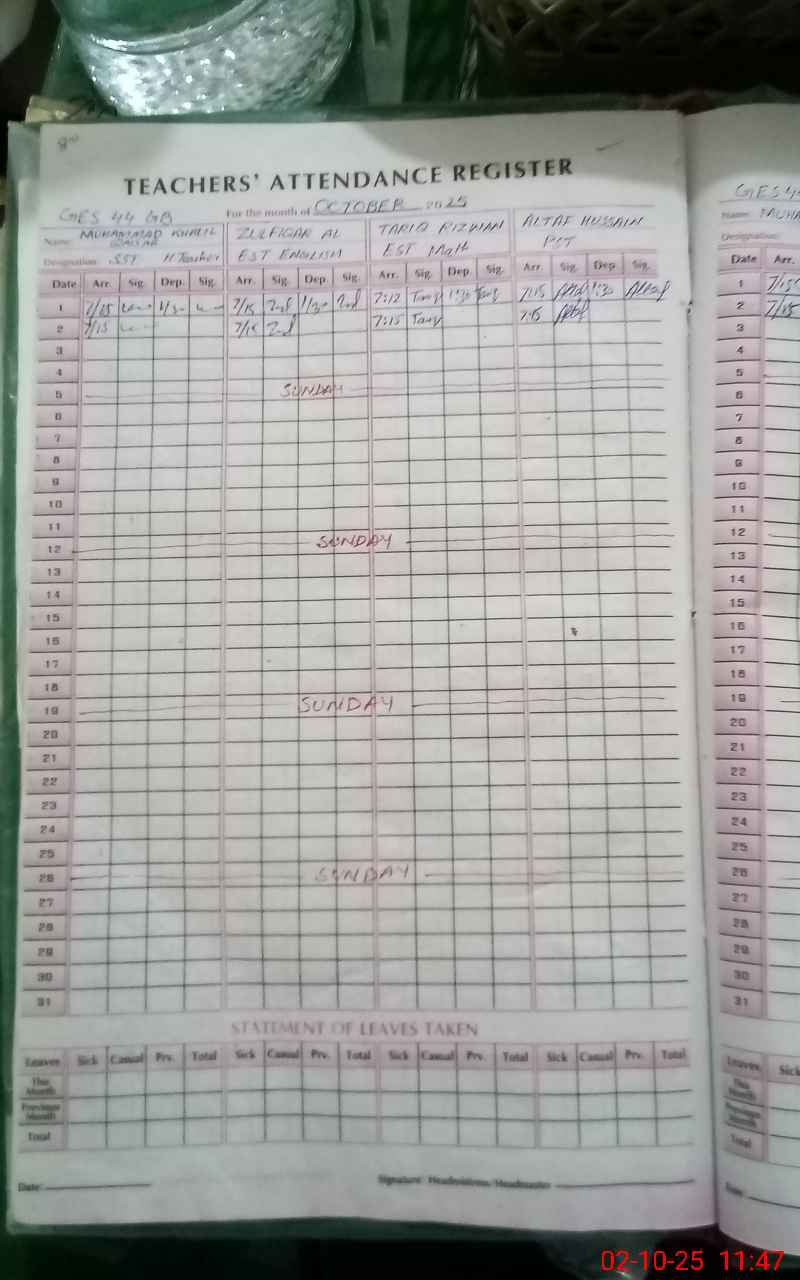 TEACHERS' ATTENDANCE REGISTER
GES 44 GB For the month of OCTOBER 2025
Name: MUHAMMAD KHALIL ZULFIQAR AL TARIQ RIZWAN ALTAF HUSSAIN
Designation: SST H.Teacher EST ENGLISH EST Math PST
Date Arr. Sig. Dep. Sig. Arr. Sig. Dep. Sig. Arr. Sig. Dep. Sig. Arr. Sig. Dep. Sig.
1 7/15 1/30 7/15 1/30 7:12 Tariq 1:30 Tariq 7:15 1:30 Altaf
2 7/15 7/15 7:15 Tariq 7:15
3
4
5 SUNDAY
6
7
8
9
10
11
12 SUNDAY
13
14
15
16
17
18
19 SUNDAY
20
21
22
23
24
25
26 SUNDAY
27
28
29
30
31
STATEMENT OF LEAVES TAKEN
Leaves Sick Casual Prv. Total Sick Casual Prv. Total Sick Casual Prv. Total Sick Casual Prv. Total
This Month
Previous Month
Total
Date: Signature: Headmistress/Headmaster
GES 4
Name:
Designation:
Date Arr.
1 7/15
2 7/15
3
4
5
6
7
8
9
10
11
12
13
14
15
16
17
18
19
20
21
22
23
24
25
26
27
28
29
30
31
Leaves Sick
This Month
Previous Month
Total
Date:
02-10-25 11:47